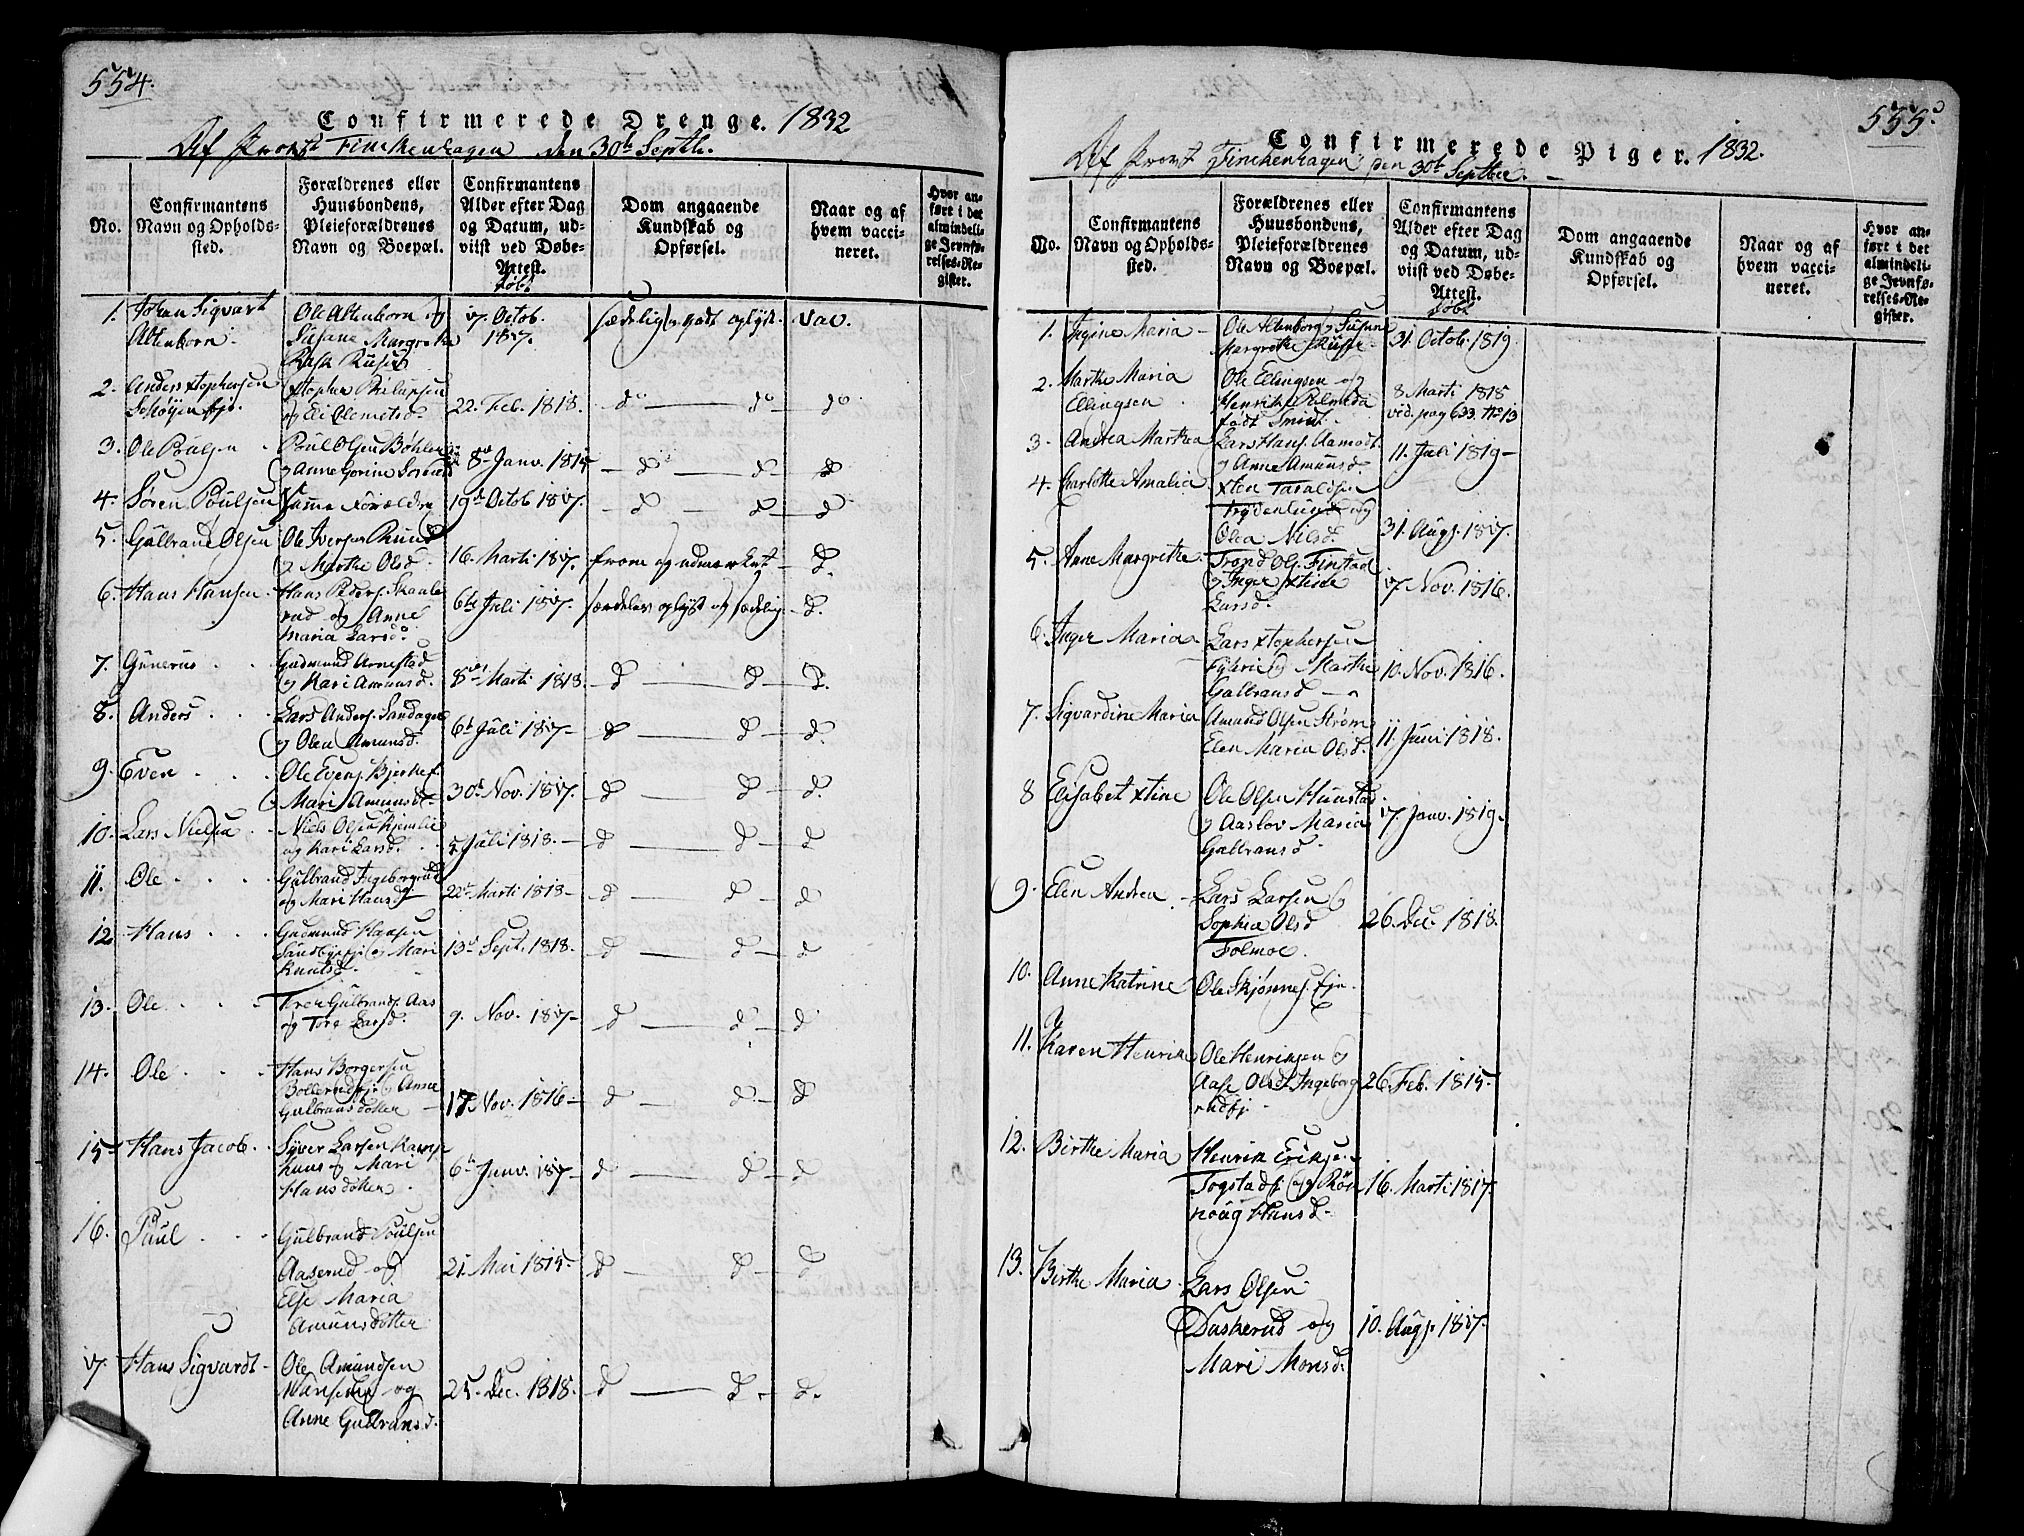 554.
Confirmerede Drenge. 1832
Af Provst Finckenhagen den 30te Septbr.
No.
Confirmantens Navn og Opholdssted.
Forældrenes eller Huusbondens, Pleieforældrenes Navn og Boepæl.
Confirmantens Alder efter Dag og Datum, udviist ved Døbe-Attest.
døbt
Dom angaaende Kundskab og Opførsel.
Naar og af hvem vaccineret.
Hvor anført i det almindelige Jevnførelses-Register.
1. Johan Sigvart Ole Altenborn og 7. Octob. sædelig og godt oplyst. vac.
Altenborn. Susane Margrethe 1817.
2. Anders Xtophersen Xtopher Philupsen
og Eli Olsmets 22. Feb. 1818. do do do
3. Ole Poulsen Poul Olsen Bøhler
og Anne Gorine 8de Janv. 1815 d d d
4. Søren Poulsen Samme Forældre 19de Octob 1817. d d d
5. Gulbrand Olsen Ole Iversen Rund
og Marthe Olsd. 16. Marti 1817. from og udmærket d.
6. Hans Hansen Hans Peders. Skaale
rud og Anne 6te Juli 1817. særdeles oplyst og sædelig d.
Maria Larsd.
7. Gunerus Gudmund Arnestad
og Kari Amunsd. 8de Marti 1818. d d d.
8. Anders Lars Anders. Sandager
og Olea Amunsd. 6te Juli 1817 d d d.
9. Even Ole Evens. Bjerkef.
og Mari Amunsd. 30te Nov. 1817. d d d.
10. Lars Nielsen Niels Olsen Kjemslie
og Kari Larsd. 5 Juli 1818. d d d
11. Ole Gulbrand Ingeborgrud
og Mari Hansd. 22de Marti 1818 d d d
12 Hans Gudmund Hansen
Sandbyeje og Mari 13de Sept. 1818. d d d
Knutsd.
13. Ole Iver Gulbrands. Aas
og Tore Larsd. 9. Nov. 1817 d d d
14. Ole Hans Borgersen
Bollerudeje og Anne
Gulbransdotter 17 Nov. 1816 d d d
15 Hans Jacob. Syver Larsen Kamp
huus og Mari 6te Janv. 1817 d d d
Hansdotter.
16. Paul Gulbrand Poulsen
Aaserud og 21. Mai 1815 d d d
Else Maria
Amunsdotter
17. Hans Sigvardt Ole Amundsen
og 25. Dec. 1818. d d. d.
Anne Gulbransd.
555.
Confirmerede Piger. 1832.
Af Provst Finckenhagen den 30te Septbr.
No.
Confirmantens Navn og Opholdssted.
Forældrenes eller Huusbondens, Pleieforældrenes Navn og Boepæl.
Confirmantens Alder efter Dag og Datum, udviist ved Døbe-Attest.
døbt
Dom angaaende Kundskab og Opførsel.
Naar og af hvem vaccineret.
Hvor anført i det almindelige Jevnførelses-Register.
1. Ingine Maria Ole Altenborg og Susane
Margrethe 31. Octob. 1819
2. Marthe Maria Ole Ellingsen og 8 Marti 1818
Ellingsen Henrikke Palmeda vid. pag 633. No 13
født Smidt.
3. Andrea Marthea Lars Hans. Aamodt
og Anne Amunsd. 11. Juli 1819
4. Charlotte Amalia Xten Taraldsen
Frydenlund og
Olea Nilsd. 31. Augs. 1817.
5. Anne Margrethe Trond Ols. Finstad
og Inger Xtine 7 Nov. 1816.
Larsd.
6. Inger Maria Lars Xtophersen
og Marthe 10. Nov. 1816.
Gulbransd
7. Sigvardine Maria Amund Olsen Strøm
Elen Maria Olsd. 11. Juni 1818.
8 Elisabet Xtine Ole Olsen Huustad
og Aaslov Maria 7. Janv. 1819
Gulbransd.
9. Elen Andrea Lars Larsen og
Sophia Olsd 26. Dec. 1818.
Folmoe
10. Anne Katrine Ole Skjønnes. Eje.
11. Karen Henrine Ole Henriksen og
Aase Olsd. Ingeborg 26. Feb. 1815.
rudej
12. Birthe Maria Henrik Eriksen
Togstadej og Røn 16. Marti 1817.
noug Hansd.
13. Birthe Maria Lars Olsen
Daskerud og 10. Augs. 1817.
Mari Monsd.